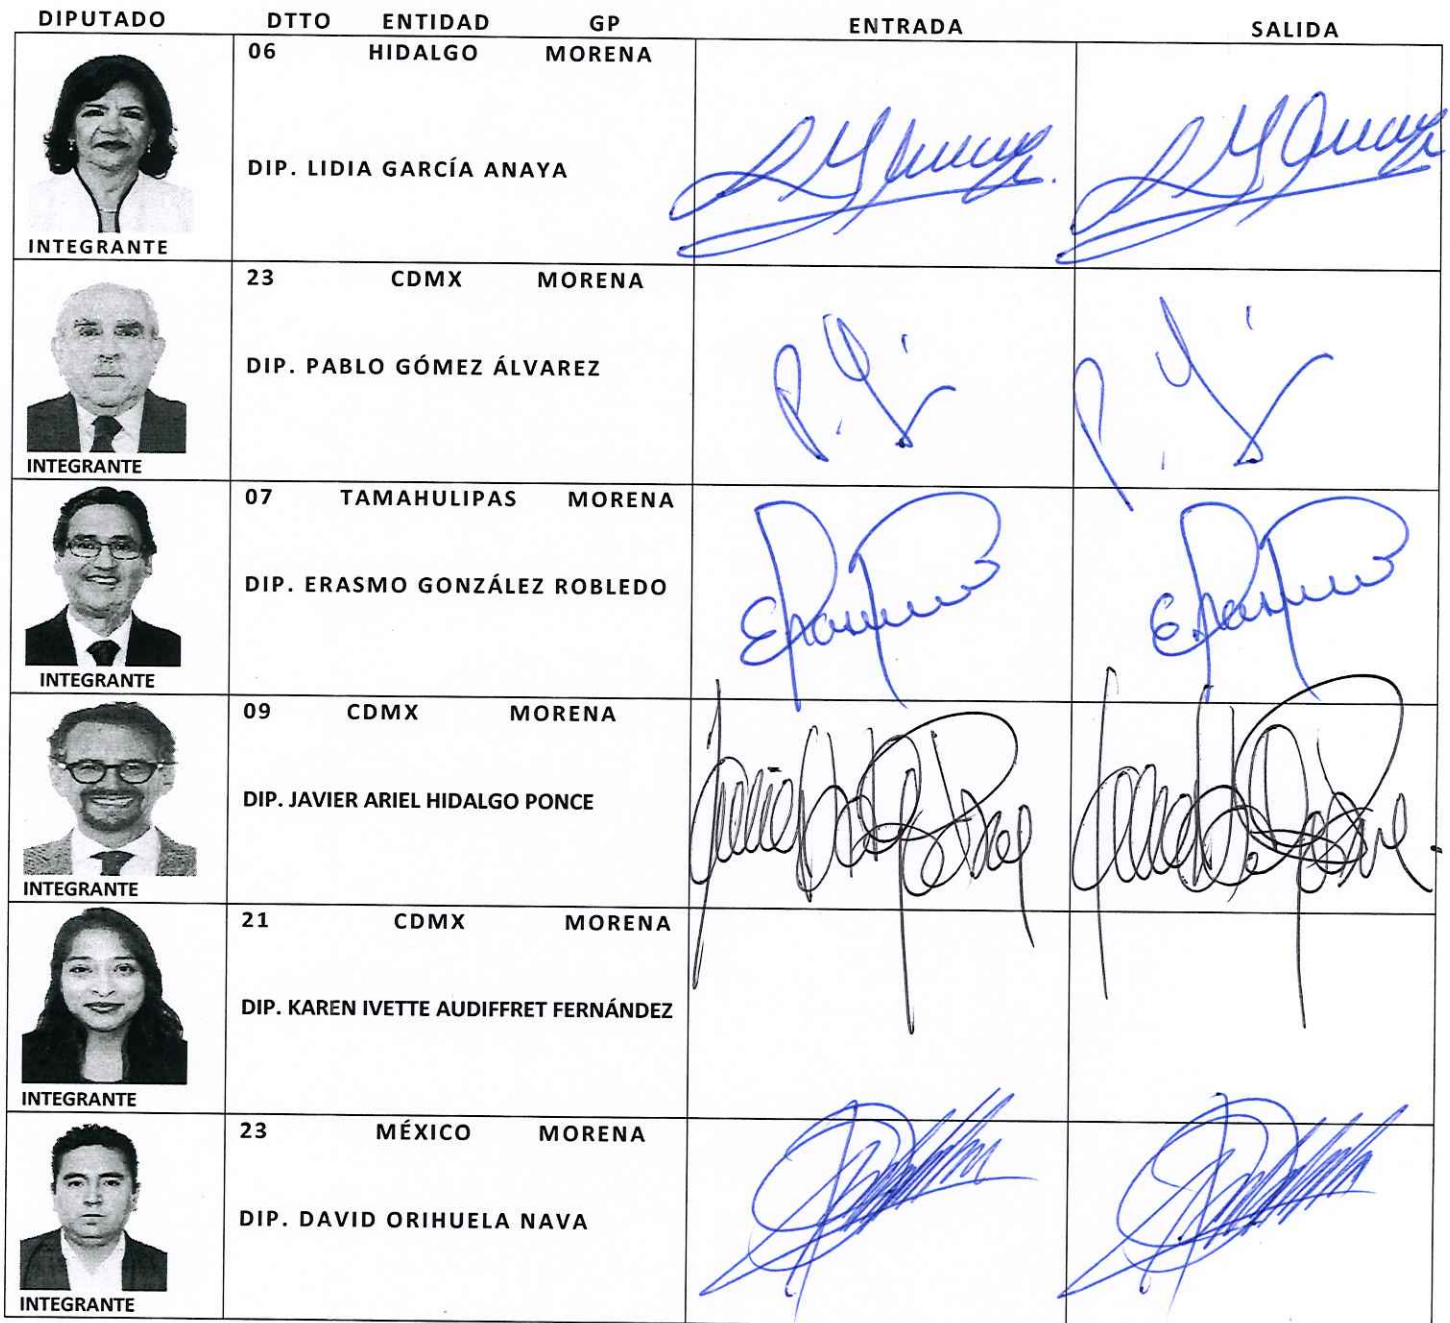 DIPUTADO DTTO ENTIDAD GP ENTRADA SALIDA
06 HIDALGO MORENA
DIP. LIDIA GARCÍA ANAYA
INTEGRANTE
23 CDMX MORENA
DIP. PABLO GÓMEZ ÁLVAREZ
INTEGRANTE
07 TAMAHULIPAS MORENA
DIP. ERASMO GONZÁLEZ ROBLEDO
INTEGRANTE
09 CDMX MORENA
DIP. JAVIER ARIEL HIDALGO PONCE
INTEGRANTE
21 CDMX MORENA
DIP. KAREN IVETTE AUDIFFRET FERNÁNDEZ
INTEGRANTE
23 MÉXICO MORENA
DIP. DAVID ORIHUELA NAVA
INTEGRANTE